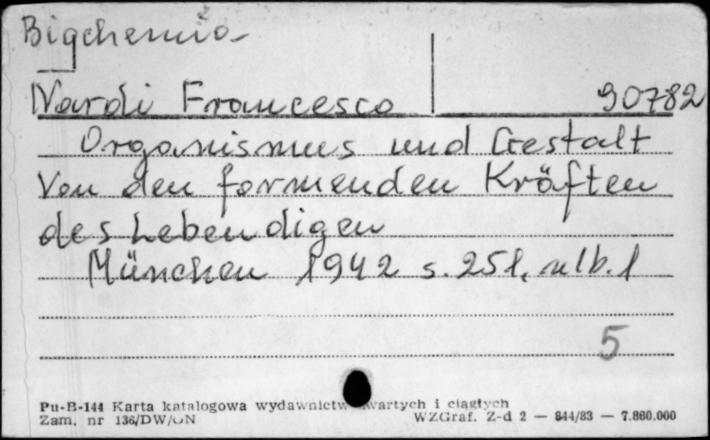 Biochemia
Nardi Francesco 90782
Organismus und Gestalt
Von den formenden Kräften
des Lebendigen
München 1942 s. 251, nlb. 1
5
Pu-B-144 Karta katalogowa wydawnictw zwartych i ciągłych
Zam. nr 136/DW/ON WZGraf. Z-d 2 — 844/83 — 7.860.000